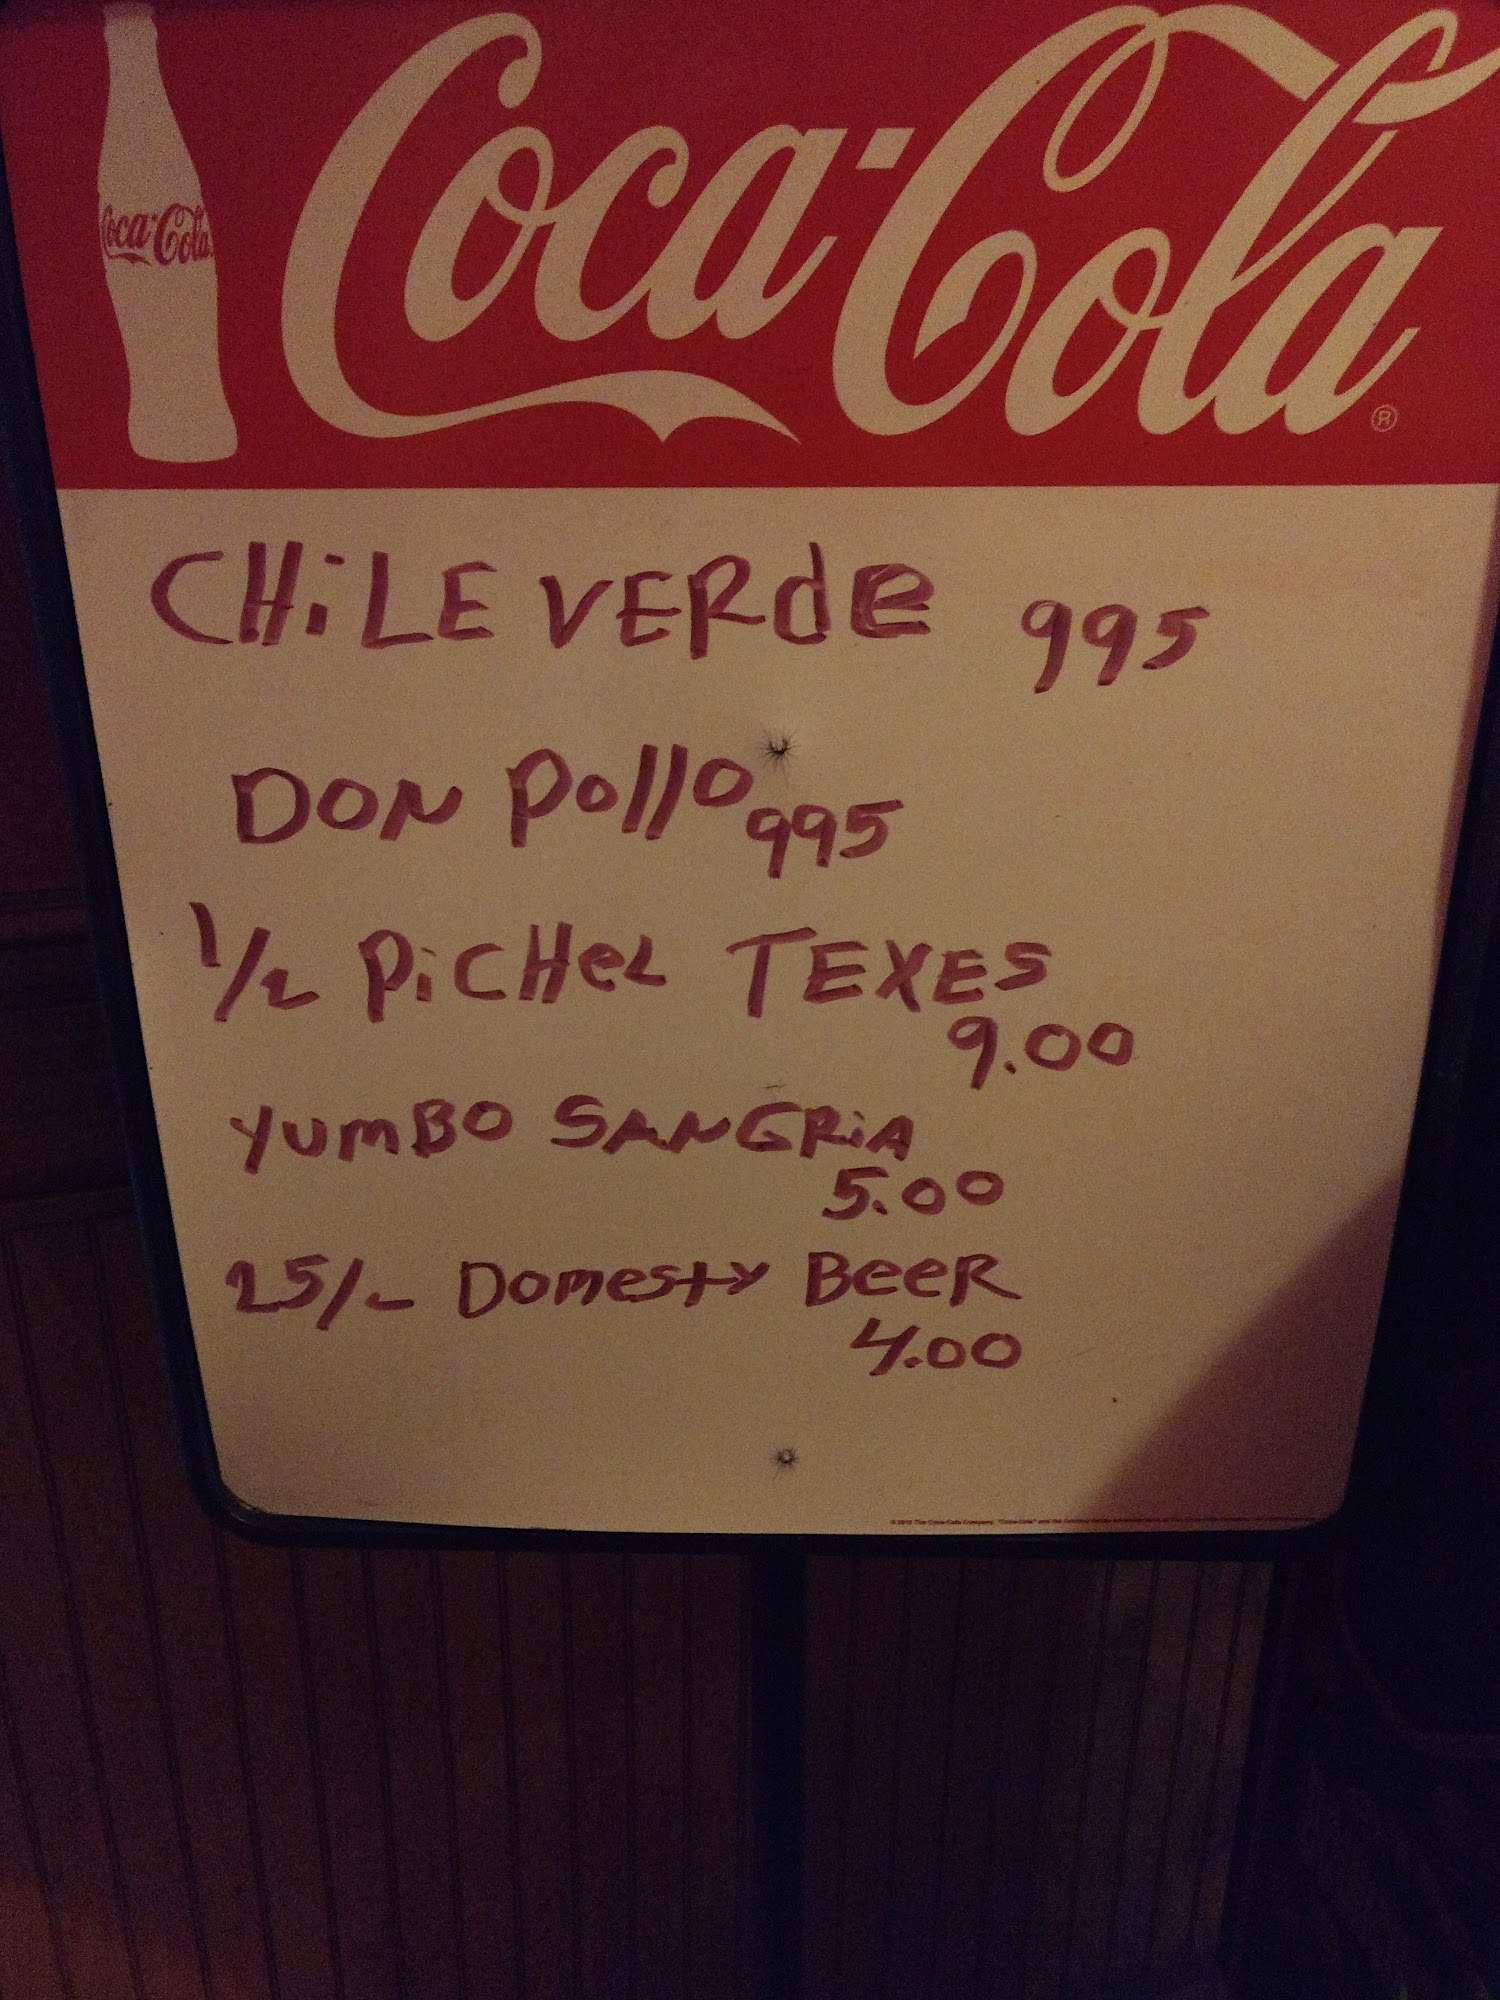 Coca-Cola
Coca-Cola ®
CHiLE VERdE 995
DON Pollo 995
1/2 PiCHeL TEXES
9.00
YUmBO SANGRiA
5.00
25/- Domesty BeeR
4.00